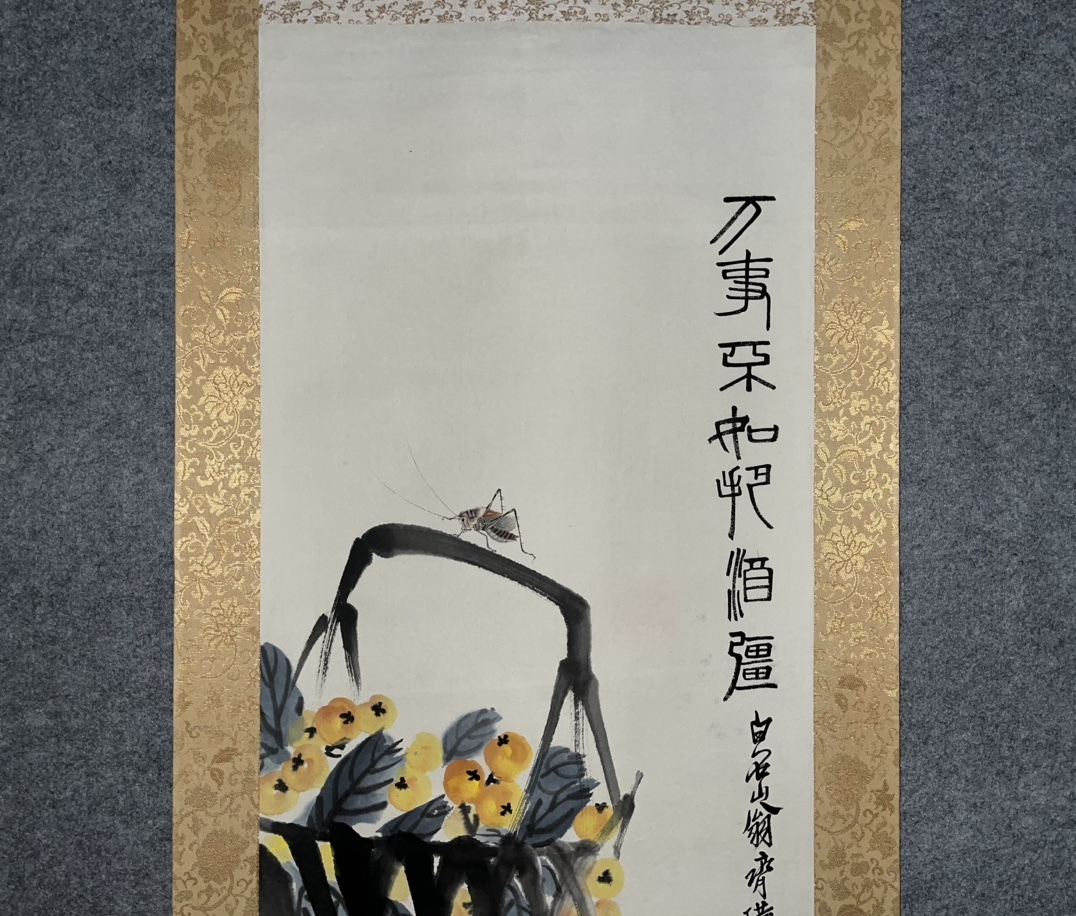 万事不如把酒彊
白石山翁齊璜